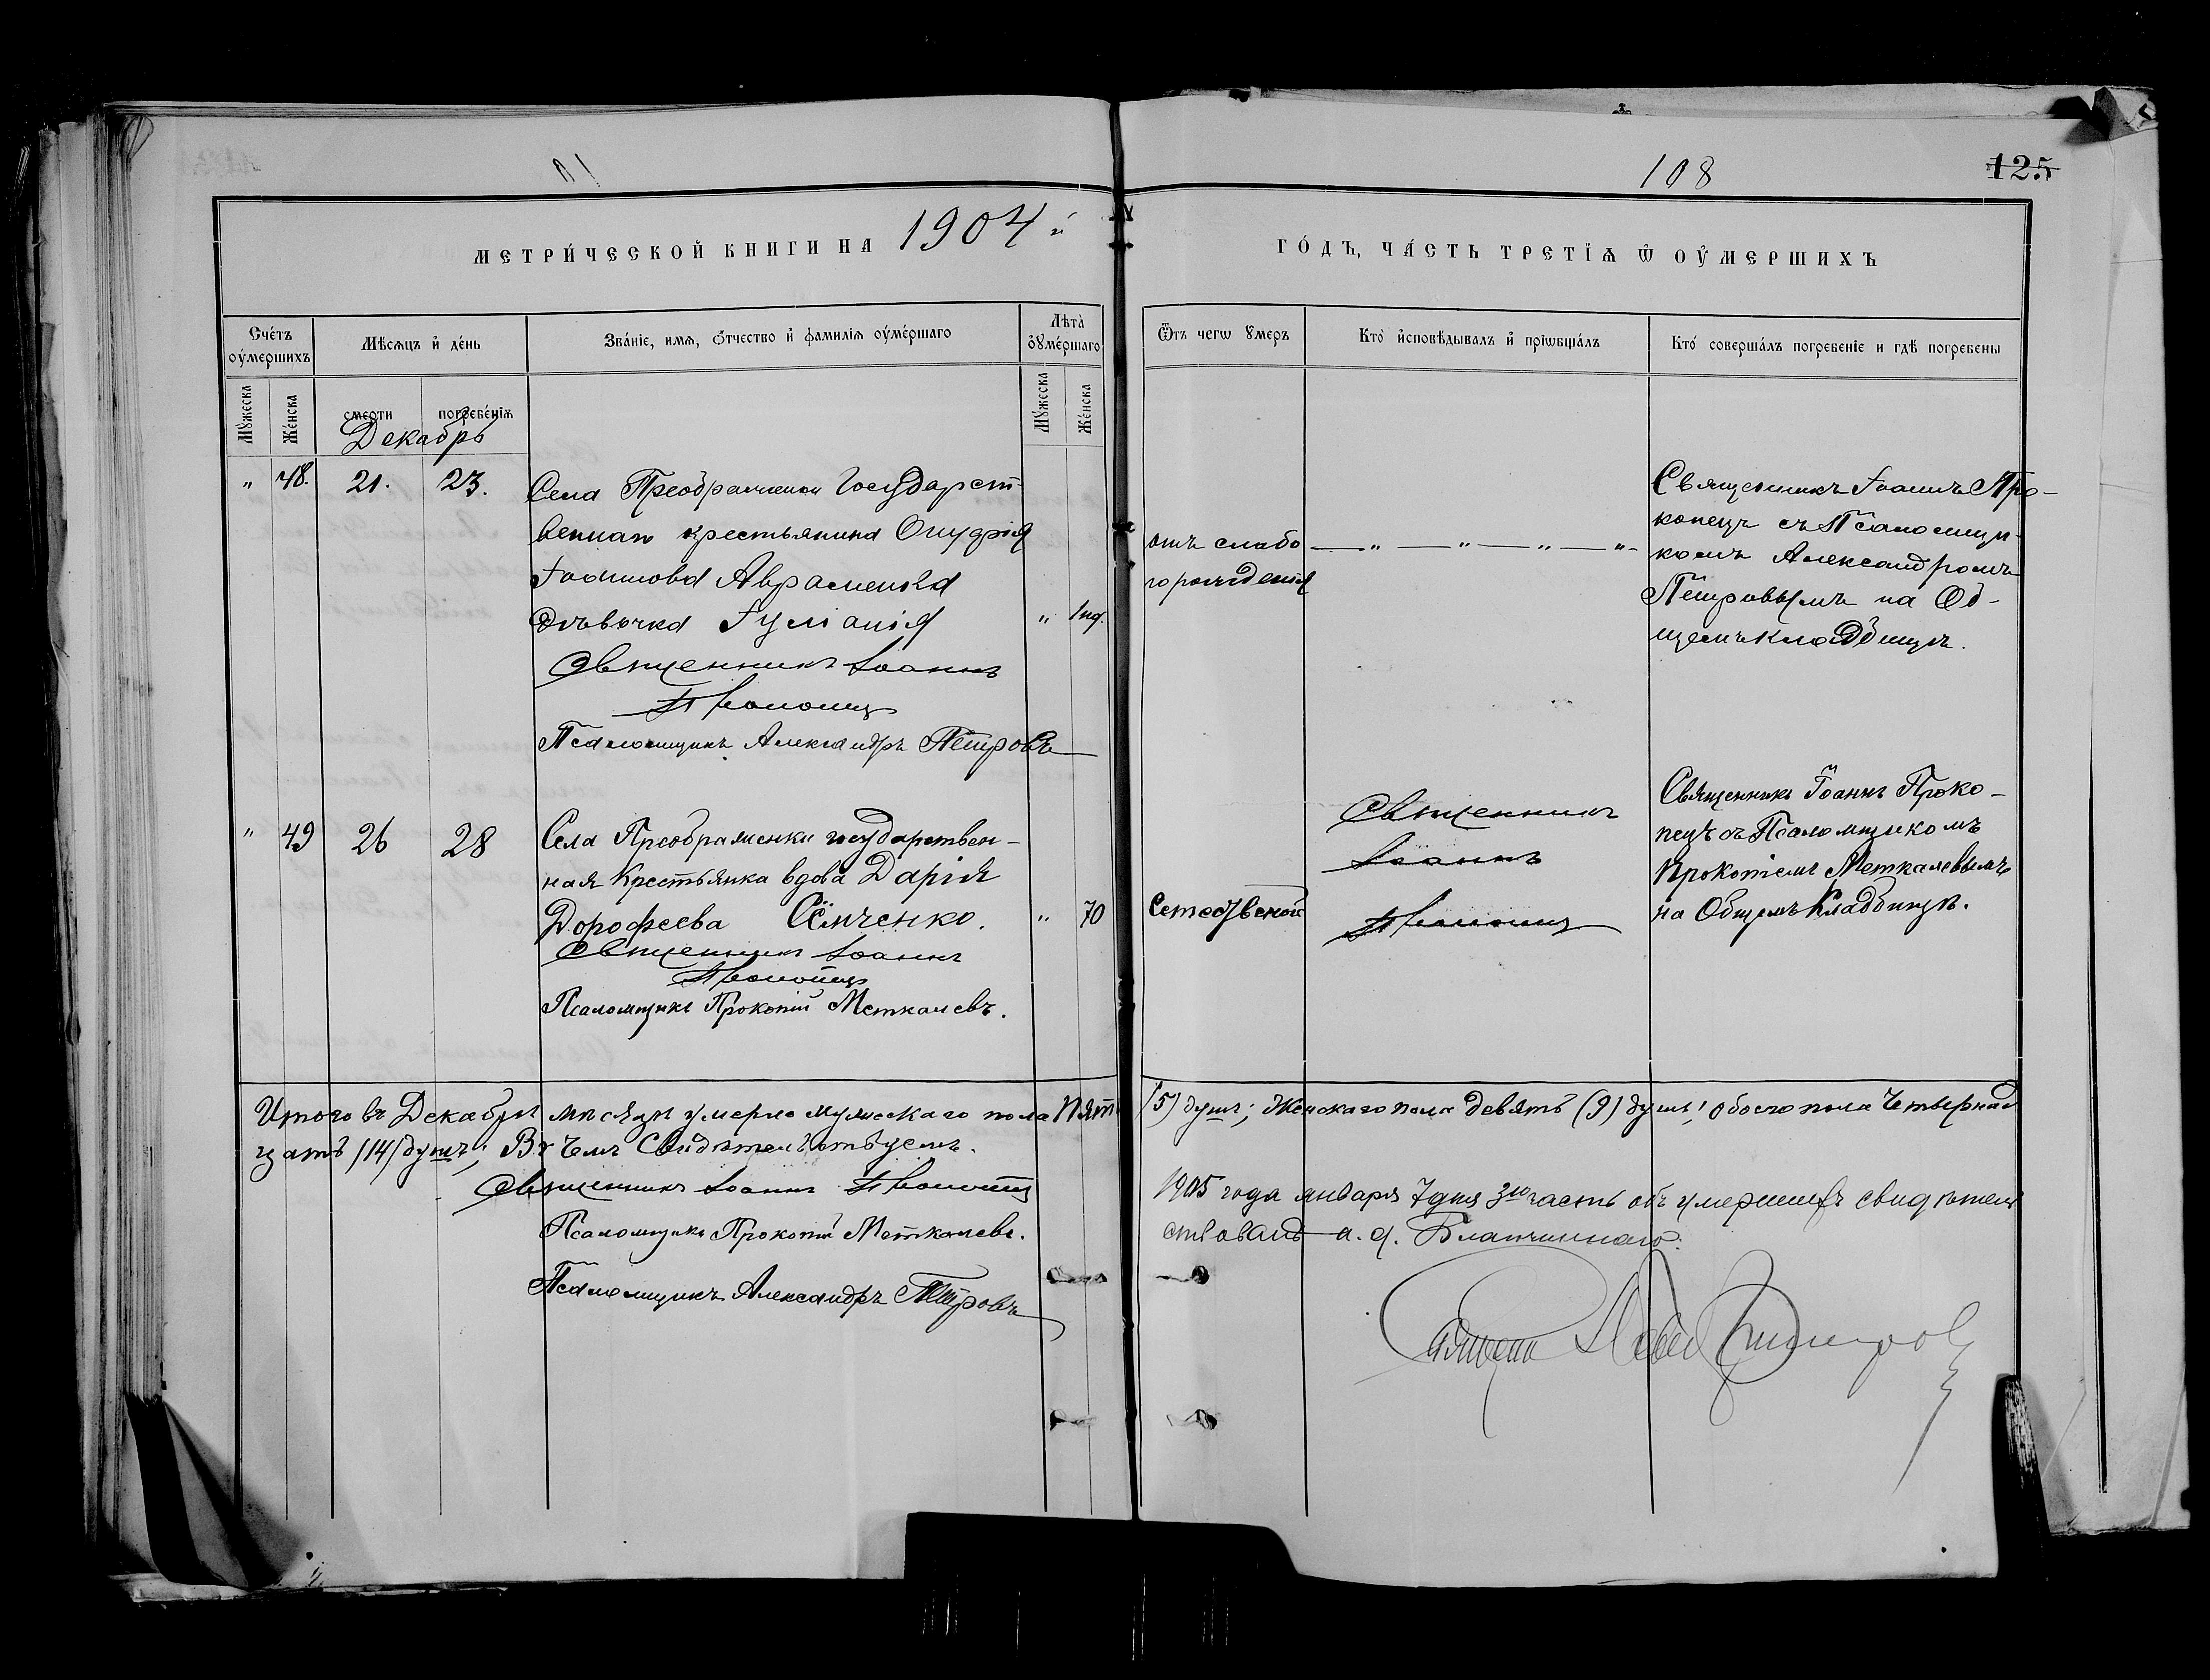 108
125
МЕТРИ́ЧЕСКОЙ КНИГИ НА 1904 й
ГО́ДЪ, ЧА́СТЬ ТРЕТІѦ Ѡ ОУ҆МЕРШИХЪ
Сче́тъ оу҆ме́ршихъ
Мѣсѧцъ и҆ де́нь
Зва́нїе, имѧ, ѻ҆́тчество и҆ фамилїѧ оу҆ме́ршаго
Лѣта̀ оу҆ме́ршаго
Ѿъ чегѡ ᲂумеръ
Кто̀ и҆сповѣ́дывалъ и҆ прїѡбща́лъ
Кто́ соверша́лъ погребенїе и гдѣ погребены
Мꙋ́жеска
Же́нска
смерти
погребе́нїѧ
Мꙋ́жеска
Же́нска
Декабрь
" 48. 21. 23.
Села Преображенки Государст-
веннаго крестьянина Онуфрія
Іоаннова Авраменка
дѣвочка Іуліанія " 1нд.
Священникъ Іоаннъ
Прокопецъ
Псаломщикъ Александръ Петровъ
отъ слабо
го рожденія
— " — " — " — " —
Священникъ Іоаннъ Про-
копецъ съ Псаломщи-
комъ Александромъ
Петровымъ на Об-
щемъ кладбищѣ.
" 49 26 28
Села Преображенки государствен-
ная Крестьянка вдова Дарія
Дорофеева Семченко. " 70
Священникъ Іоаннъ
Прокопецъ
Псаломщикъ Прокопій Меткалевъ.
Священникъ
Іоаннъ
Прокопецъ
Священникъ Іоаннъ Проко-
пецъ съ Псаломщикомъ
Прокопіемъ Меткалевымъ
на Общемъ Кладбищѣ.
Итого въ Декабрѣ мѣсяцѣ умерло мужескаго пола Пять (5) душъ; Женскаго пола девять (9) душъ; обоего пола Четырнад
цать /14/ душъ; Въ чемъ Свидѣтельствуемъ.
Священникъ Іоаннъ Прокопецъ
Псаломщикъ Прокопій Меткалевъ.
Псаломщикъ Александръ Петровъ
1905 года января 7 дня 3ю часть объ умершихъ свидѣтель
ствовалъ